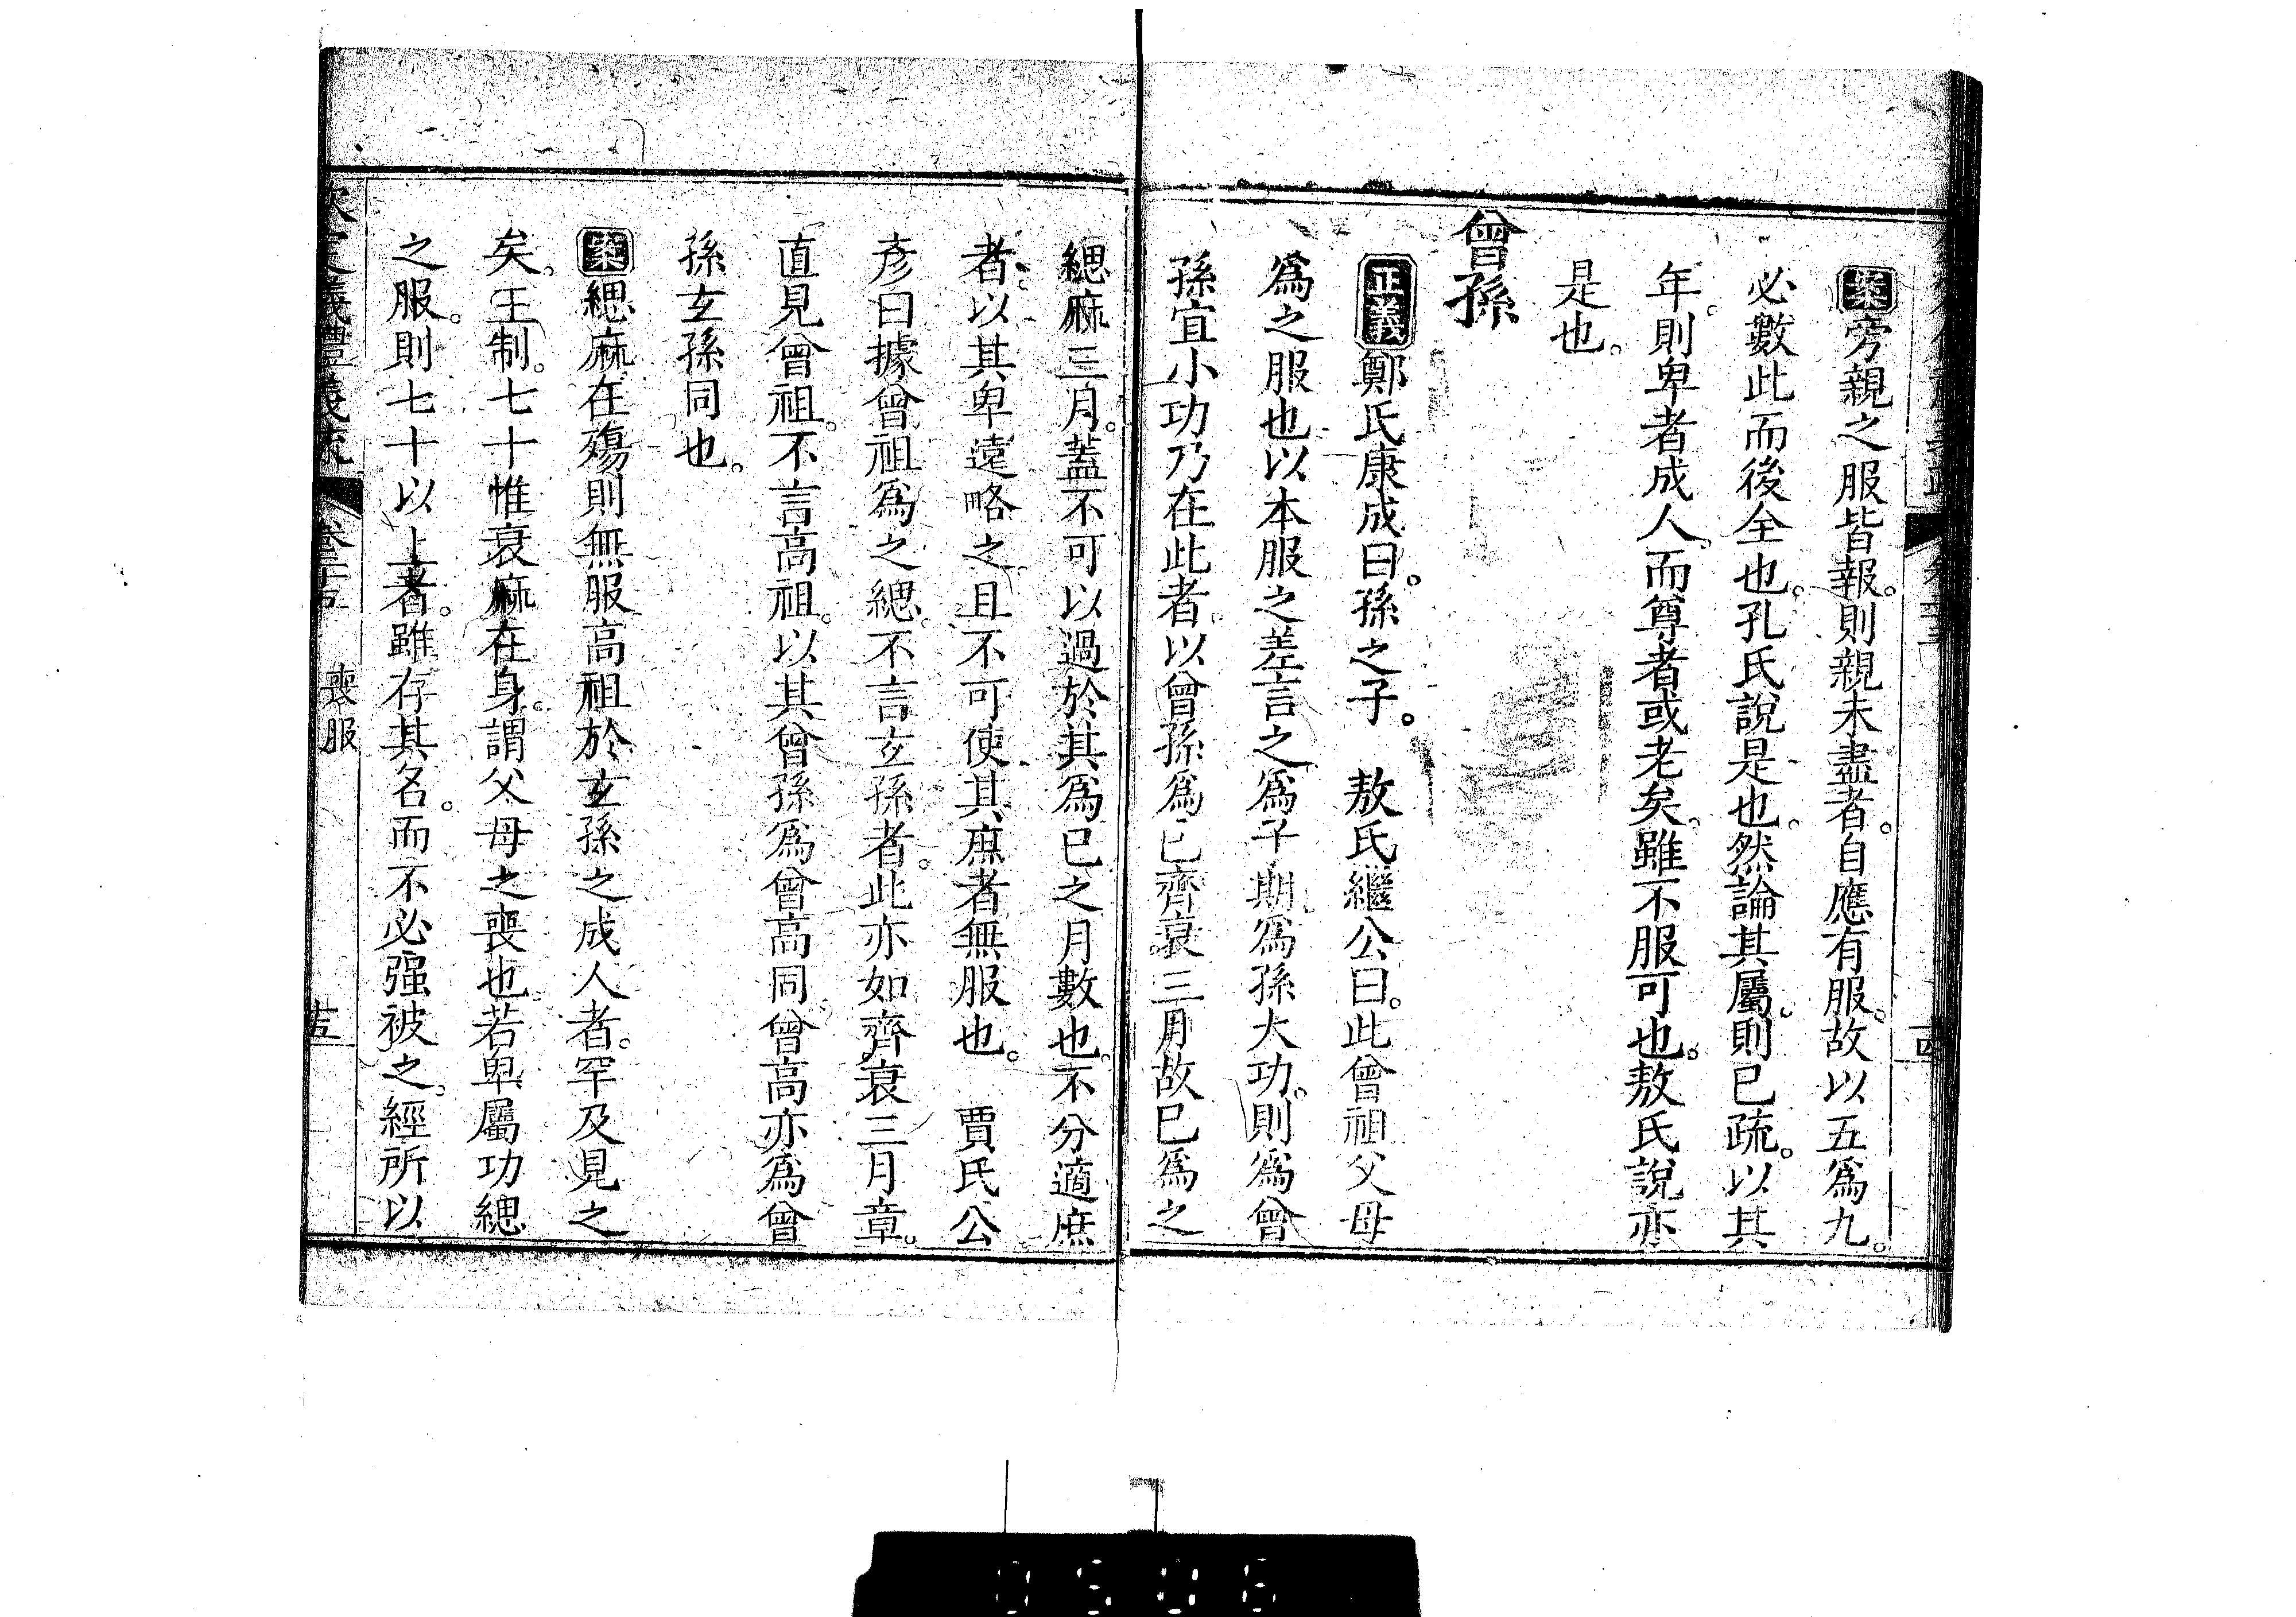 案旁親之服皆報。則親未盡者。自應有服。故以五爲九。
必數此而後全也。孔氏說是也。然論其屬。則已疏。以其
年。則卑者成人。而尊者或老矣。雖不服可也。敖氏說亦
是也。
曾孫
正義鄭氏康成曰。孫之子。　敖氏繼公曰。此曾祖父母
爲之服也以本服之差言之爲子期。爲孫大功。則爲曾
孫宜小功乃在此者。以曾孫爲已齊衰三月故已爲之
緦麻三月。蓋不可以過於其爲已之月數也。不分適庶
者。以其卑遠略之。且不可使其庶者無服也。　賈氏公
彥曰據曾祖爲之緦。不言玄孫者。此亦如齊衰三月章。
直見曾祖。不言高祖。以其曾孫爲曾高同。曾高亦爲曾
孫玄孫同也。
案緦麻在殤則無服高祖於玄孫之成人者。罕及見之
矣。王制。七十惟衰麻在身。謂父母之喪也。若卑屬功緦
之服。則七十以上者。雖存其名。而不必强被之。經所以
欽定義禮義疏　卷二十五　喪服　五
0506